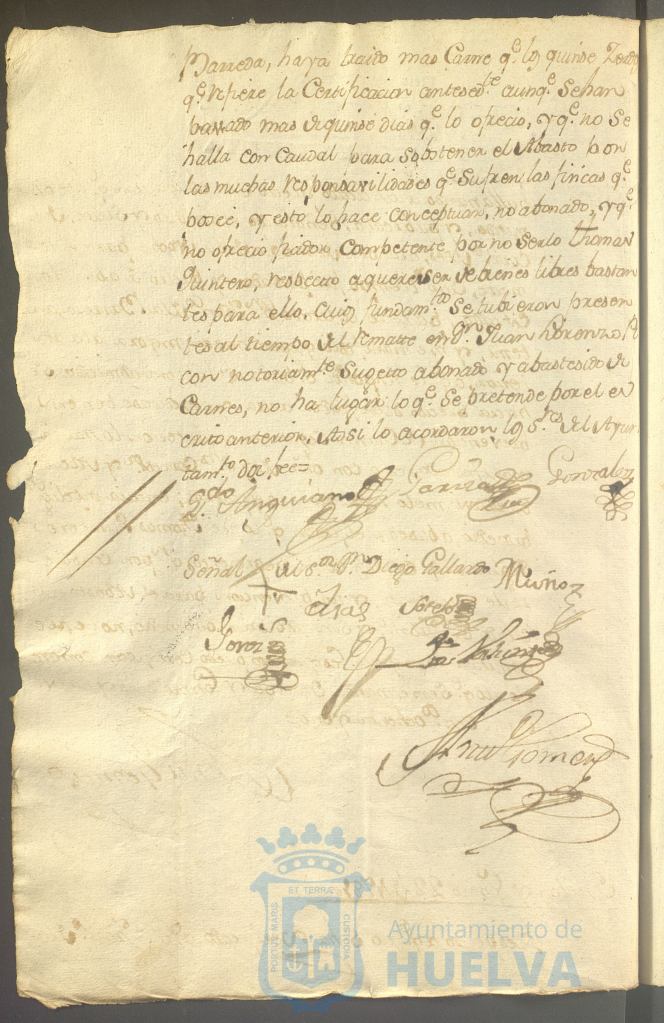 Barreda, haya traido mas Carne q.e los quinse Zerdos
q.e refiere la Certificacion antesed.te aunq.e se han
passado mas de quinse dias q.e lo ofrecio, y q.e no se
halla con Caudal para sobstener el Abasto por
las muchas responsavilidades q.e sufren las fincas q.e
poseè, y esto lo hace conceptuar, no abonado, y q.e
no ofrecio fiador competente por no serlo Thomas
Quintero, respecto a querer ser de bienes libres bastan
tes para ello, cuios fundam.tos se tubieron presen
tes al tiempo del Rematte en d.n Juan Lorenzo
con notoriam.te sugetto abonado y abastesido de
Carnes, no ha lugar lo q.e se pretende por el es
crito anterior, Assi lo acordaron los S.res del Ayun
tam.to doi fee=
Anguiano Gonzalez
Señal de el S.or Diego Gallardo Muñoz
Dias Sotelo
Gomez
PORTUS MARIS ET TERRÆ CUSTODIA
Ayuntamiento de
HUELVA